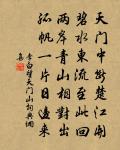 天門中斷楚江開
碧水東流至此回
兩岸青山相對出
孤帆一片日邊來
李白望天门山詞典網
集